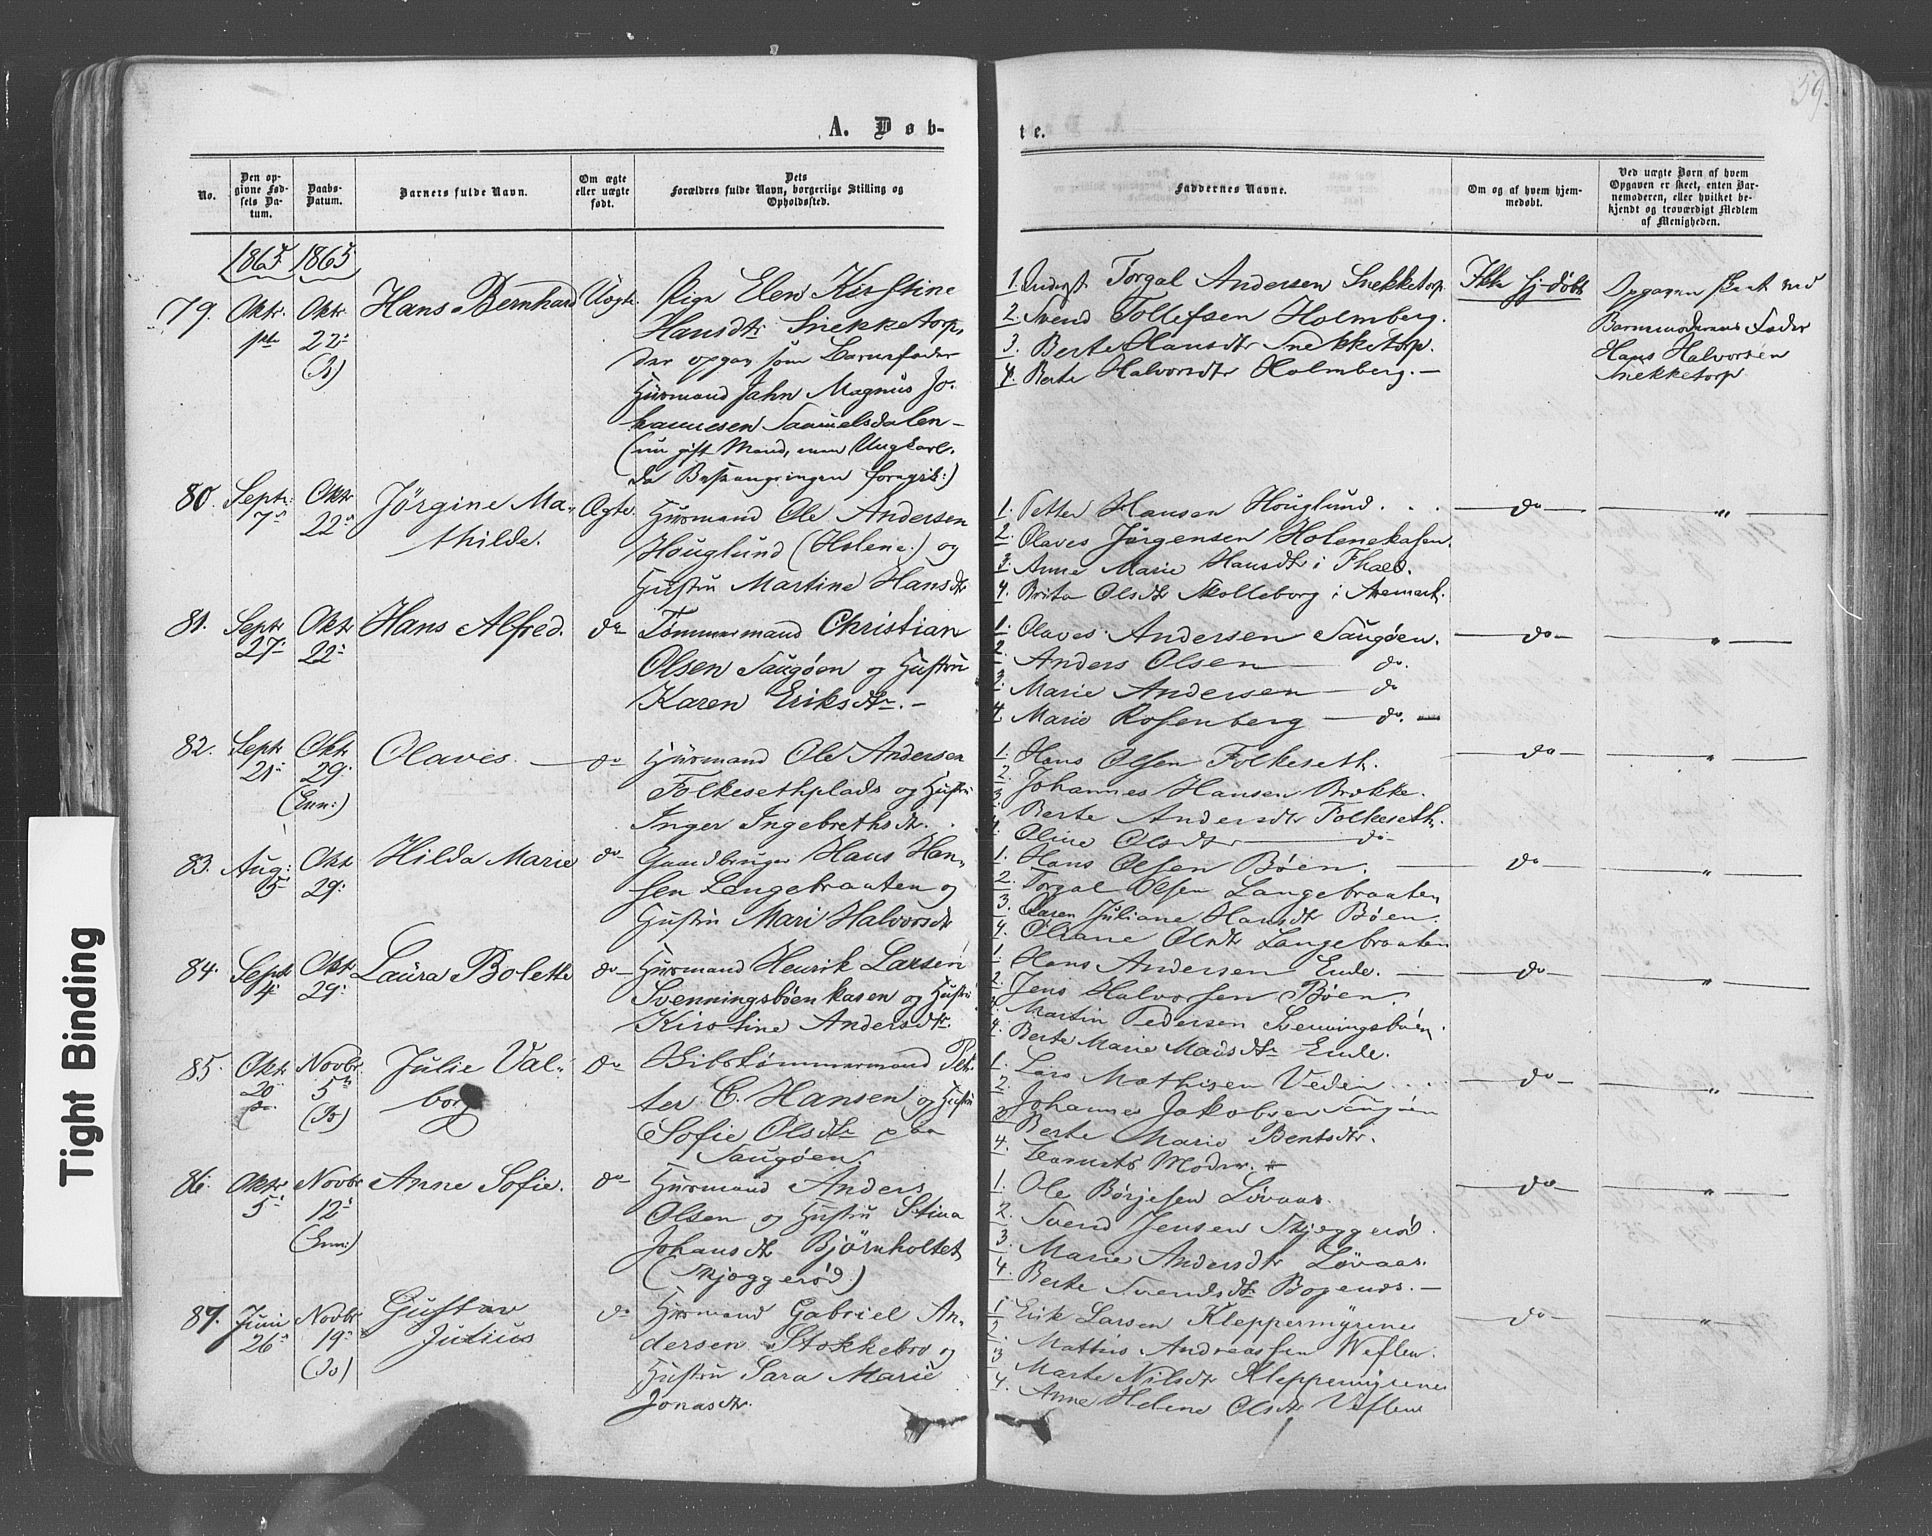 59.
A. Døb-
te.
No.
Den op-
givne Fød-
sels Da-
tum.
Daabs-
Datum.
Barnets fulde Navn.
Om ægte
eller uægte
født.
Dets
Forældres fulde Navn, borgerlige Stilling og
Opholdssted.
Faddernes Navne.
Om og af hvem hjem-
medøbt.
Ved uægte Børn af hvem
Opgaven er skeet, enten Bar-
nemoderen, eller hvilket be-
kjendt og troværdigt Medlem
af Menigheden.
1865 1865
79. Oktr. Oktr 22 Hans Bernhard Uægte
Pige Elen Kirstine
Hansdtr Snekketorp,
der opgav som Barnefader
Husmand Jahn Magnus Jo-
hannesen Saamelsdalen
(nu gift Mand, men Ungkarl
da Besvangringen foregik:)
1. Torgal Andersen Snekketorp
2. Svend Tollefsen Holmberg.
3. Berte Hansdtr Snekketorp.
4. Berte Halvorsdtr Holmberg.
Ikke hj-døbt
Opgaven skeet ved
Barnemoderens Fader
Hans Halvorsen
Snekketorp
80. Septr: 7 Oktr 22 Jørgine Ma-
thilde.
Ægte.
Husmand Ole Andersen
Houglund (Holene:) og
Hustru Martine Hansdtr
1. Petter Hansen Houglund
2. Olaves Jørgensen Holenekasen.
3. Anne Marie Hansdtr i Fhald.
4. Brita Olsdtr Skolleborg i Aremark.
do "
81. Septr 27 Oktr 22 Hans Alfred. do
Tømmermand Christian
Olsen Saugøen og Hustru
Karen Eriksdtr.
1. Olaves Andersen Saugøen.
2. Anders Olsen do.
3. Marie Andersen do
4. Marie Rosenberg do.
do "
82. Septr 21 Oktr 29. (Enn:) Olaves do
Husmand Ole Andersen
Folkesethplads og Hustru
Inger Ingebrethsdtr.
1. Hans Olsen Folkeseth.
2. Johannes Hansen Brække.
3. Berte Andersdtr Folkeseth.
4. Oline Olsdtr do
do "
83. Aug: 5 Oktr 29. Hilda Marie do
Gaardbruger Hans Han-
sen Langebraaten og
Hustru Mari Halvorsdtr
1. Hans Olsen Bøen.
2. Torgal Olsen Langebraaten
3. Juliane Hansdtr Bøen.
4. Oliane Olsdtr Langebraaten
do "
84. Septr 4 Oktr 29. Laura Bolette do
Husmand Henrik Larsen
Svenningsbøenkasen og Hustru
Kirstine Andersdtr.
1. Hans Andersen Ende.
2. Jens Halvorsen Bøen.
3. Martin Pedersen Svenningsbøen.
4. Berte Marie Madsdtr Ende.
do "
85. Oktr 20 Novbr 5 Julie Val-
borg
do
Skibstømmermand Pet-
ter C. Hansen og Hustru
Sofie Olsdtr paa
Saugøen.
1. Lars Mathisen Veden
2. Johannes Jakobsen Saugøen
3. Berte Marie Bentsdtr.
4. Barnets Moder.
do "
86. Oktr 5 Novbr 12 (Enn:) Anne Sofie. do
Husmand Anders
Olsen og Hustru Stina
Johansdtr Bjørnholtet
(Skjæggerød)
1. Ole Børjesen Løvaas.
2. Svend Jensen Skjæggerød.
3. Marie Andersdtr Løvaas.
4. Berte Svendsdtr Bogenes.
do "
87. Juni 26 Novbr 19 Gustav
Julius
do
Husmand Gabriel An-
dersen Stokkebro og
Hustru Sara Marie
Jonasdtr.
1. Erik Larsen Kleppermyrene
2. Mathis Andreassen Veflen.
3. Marte Nilsdtr Kleppermyrene
4. Anne Helene Olsdtr Veflen
do "
Tight Binding